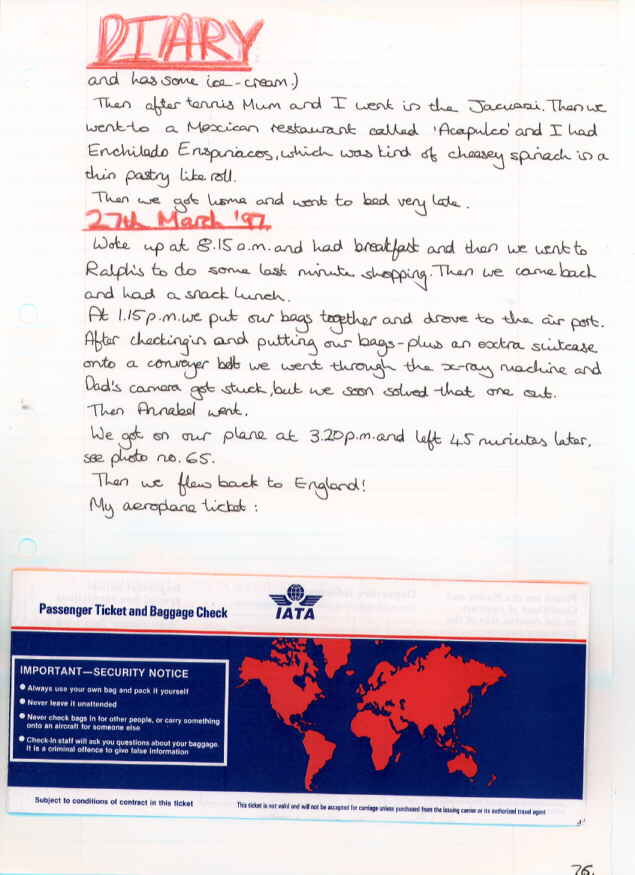 DIARY
and has some ice-cream.)
Then after tennis Mum and I went in the Jacuzzi. Then we
went to a Mexican restaurant called 'Acapulco' and I had
Enchilado Enspinacos, which was kind of cheesey spinach in a
thin pastry like roll.
Then we got home and went to bed very late.
27th March '97
Woke up at 8.15 a.m. and had breakfast and then we went to
Ralph's to do some last minute shopping. Then we came back
and had a snack lunch.
At 1.15 p.m. we put our bags together and drove to the air port.
After checking in and putting our bags-plus an extra suitcase
onto a conveyer belt we went through the x-ray machine and
Dad's camera got stuck, but we soon solved that one out.
Then Annabel went.
We got on our plane at 3.20 p.m. and left 45 minutes later.
see photo no. 65.
Then we flew back to England!
My aeroplane ticket :
Passenger Ticket and Baggage Check
IATA
IMPORTANT—SECURITY NOTICE
● Always use your own bag and pack it yourself
● Never leave it unattended
● Never check bags in for other people, or carry something
onto an aircraft for someone else
● Check-in staff will ask you questions about your baggage.
It is a criminal offence to give false information
Subject to conditions of contract in this ticket
This ticket is not valid and will not be accepted for carriage unless purchased from the issuing carrier or its authorized travel agent
76.